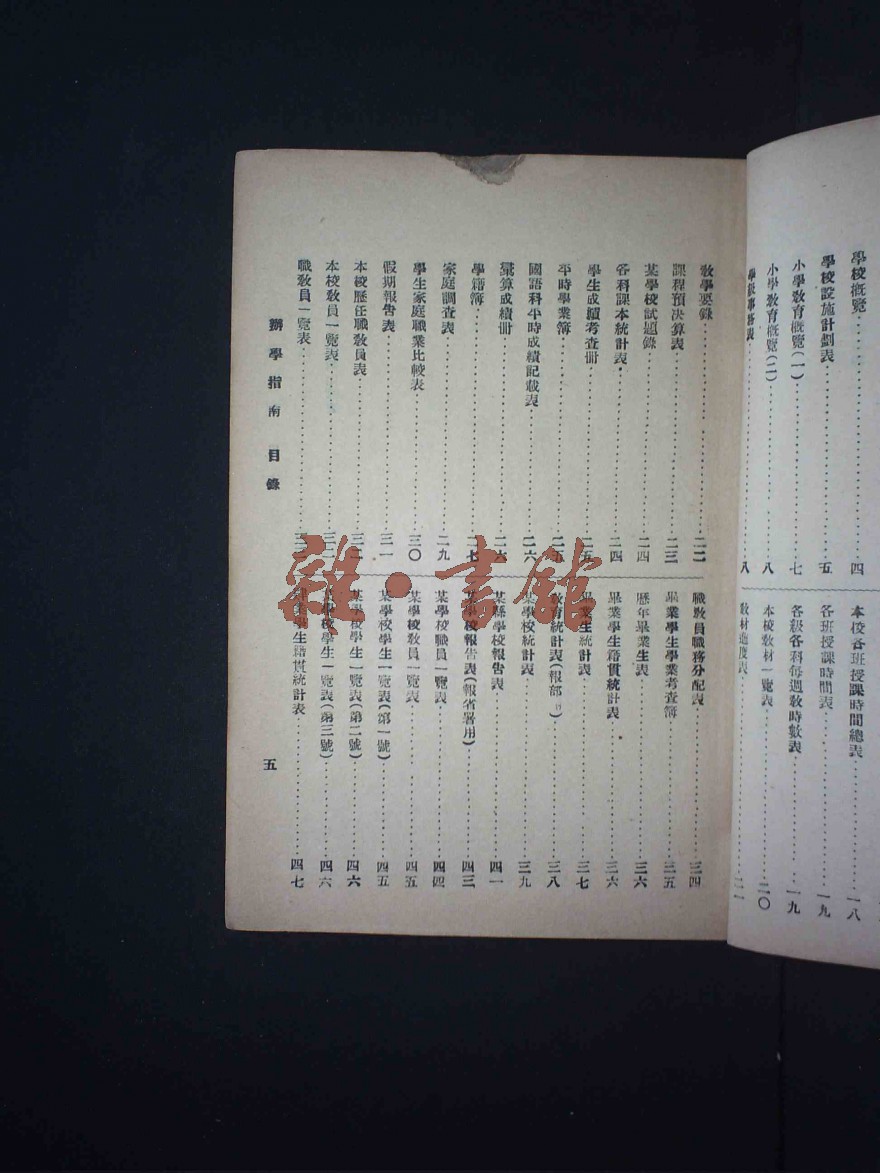 學校概覽 四
學校設施計劃表 五
小學教育概覽(一) 七
小學教育概覽(二) 八
學級事務表 八
本校各班授課時間總表 一八
各班授課時間表 一九
各級各科每週教時數表 一九
本校教材一覽表 二〇
教材進度表 二一
教學要錄 二二
課程預決算表 二三
某學校試題錄 二四
各科課本統計表 二四
學生成績考查冊 二五
平時學業簿 二五
國語科平時成績記載表 二六
彙算成績冊 二六
學籍簿 二七
家庭調查表 二九
學生家庭職業比較表 三〇
假期報告表 三一
本校歷任職教員表 三二
本校教員一覽表 三二
職教員一覽表
職教員職務分配表 三四
畢業學生學業考查簿 三五
歷年畢業生表 三六
畢業學生籍貫統計表 三六
畢業生統計表 三七
教育統計表(報部用) 三八
某學校統計表 三九
某縣學校報告表 四一
某學校報告表(報省署用) 四三
某學校職員一覽表 四四
某學校教員一覽表 四五
某學校學生一覽表(第一號) 四五
某學校學生一覽表(第二號) 四六
某學校學生一覽表(第三號) 四六
學生籍貫統計表 四七
辦學指南 目錄
五
雜·書館